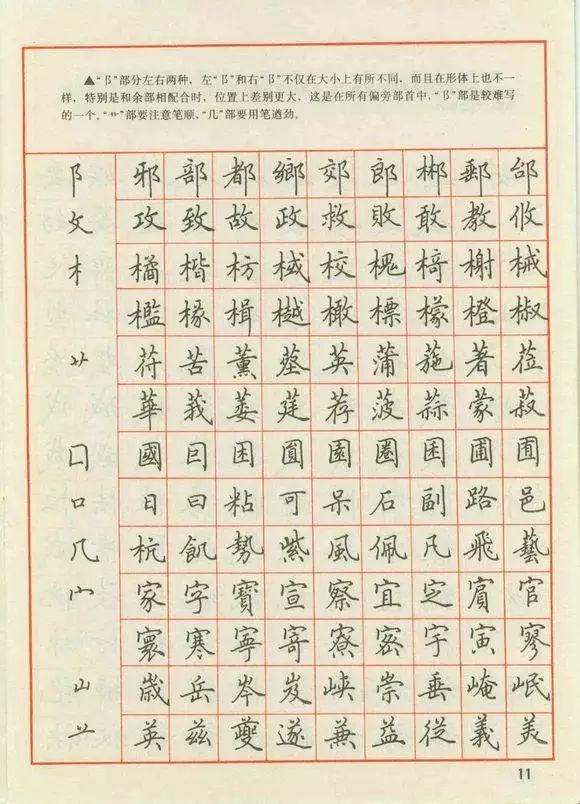 ▲“阝”部分左右两种，左“阝”和右“阝”不仅在大小上有所不同，而且在形体上也不一
样，特别是和余部相配合时，位置上差别更大，这是在所有偏旁部首中，“阝”部是较难写
的一个。“艹”部要注意笔顺，“几”部要用笔遒劲。
阝 邪 部 都 鄉 郊 郎 郴 郵 邰
攵 攻 致 故 政 救 敗 敢 教 攸
木 橘 楷 枋 棫 校 槐 椅 榭 械
檻 椽 楫 樾 橄 標 檬 橙 椒
艹 苻 苦 薰 英 蒲 葹 著 莅
華 莪 蒌 莛 荐 菠 蒜 蒙 菽
囗 國 囙 困 圓 園 圈 囷 圃 囿
口 日 曰 粘 可 呆 石 副 路 邑
几 杭 飢 勢 紫 風 佩 凡 飛 藝
宀 家 字 寶 宣 察 宜 定 賓 官
寰 寒 寧 寄 寮 密 宇 寅 寥
山 嵗 岳 岑 岌 峡 崇 垂 崦 岷
䒑 英 兹 夔 遂 兼 益 從 義 美
11